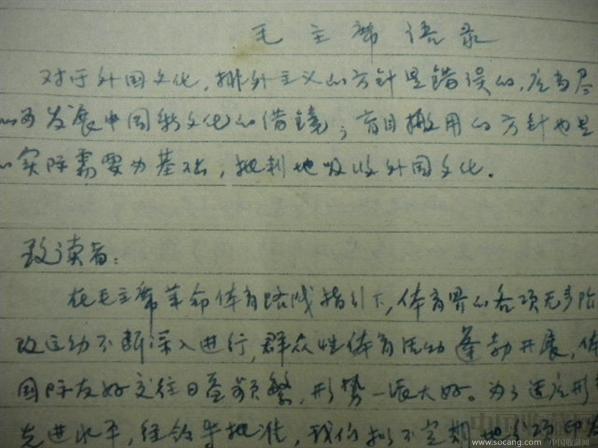 毛主席语录
对于外国文化,排外主义的方针是错误的,应当尽
以为发展中国新文化的借镜;盲目搬用的方针也是
的实际需要为基础,批判地吸收外国文化。
致读者:
在毛主席革命体育路线指引下,体育界的各项无产阶
政运动不断深入进行,群众性体育活动蓬勃开展,体
国际友好交往日益频繁,形势一派大好。为了适应形
先进水平,经领导批准,我们拟不定期地
www.socang.com/中国收藏网